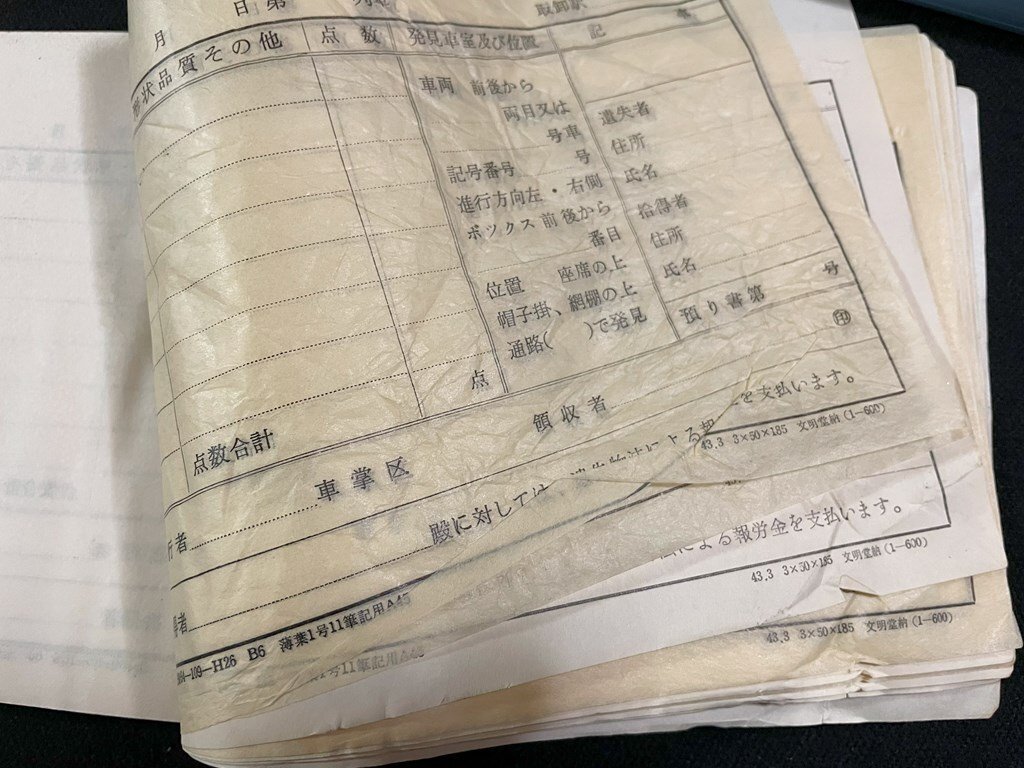 月 日第 列車 取卸駅
形状品質その他 点数 発見車室及び位置 記 事
車両 前後から
両目又は
号車
記号番号 号
進行方向左・右側
ボックス前後から
番目
位置 座席の上
帽子掛、網棚の上
通路( )で発見
遺失者
住所
氏名
拾得者
住所
氏名
預り書第 号
点
点数合計
車掌区 領収者 ㊞
行者
得者
殿に対しては、遺失物法による報
を支払います。
―109―H26 B6 薄葉1号11筆記用A45
43.3 3×50×185 文明堂納(1―600)
による報労金を支払います。
1号11筆記用A45
43.3 3×50×185 文明堂納(1―600)
43.3 3×50×185 文明堂納(1―600)